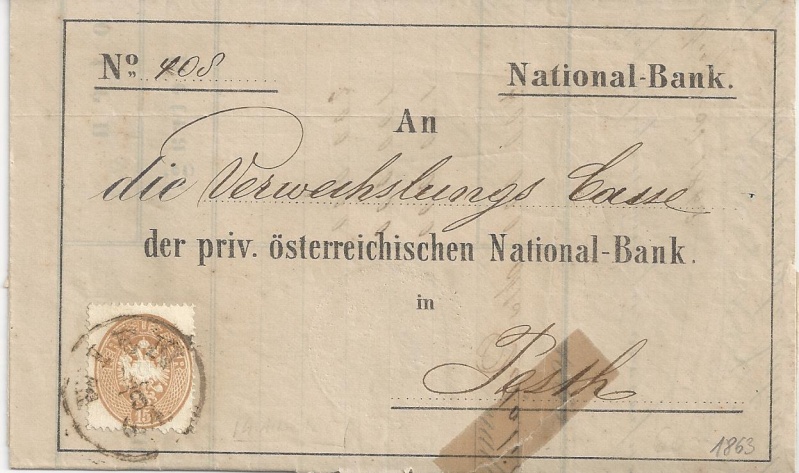 No 408
National-Bank.
An
die Verwechslungs Casse
der priv. österreichischen National-Bank.
in
Pesth
15
1863